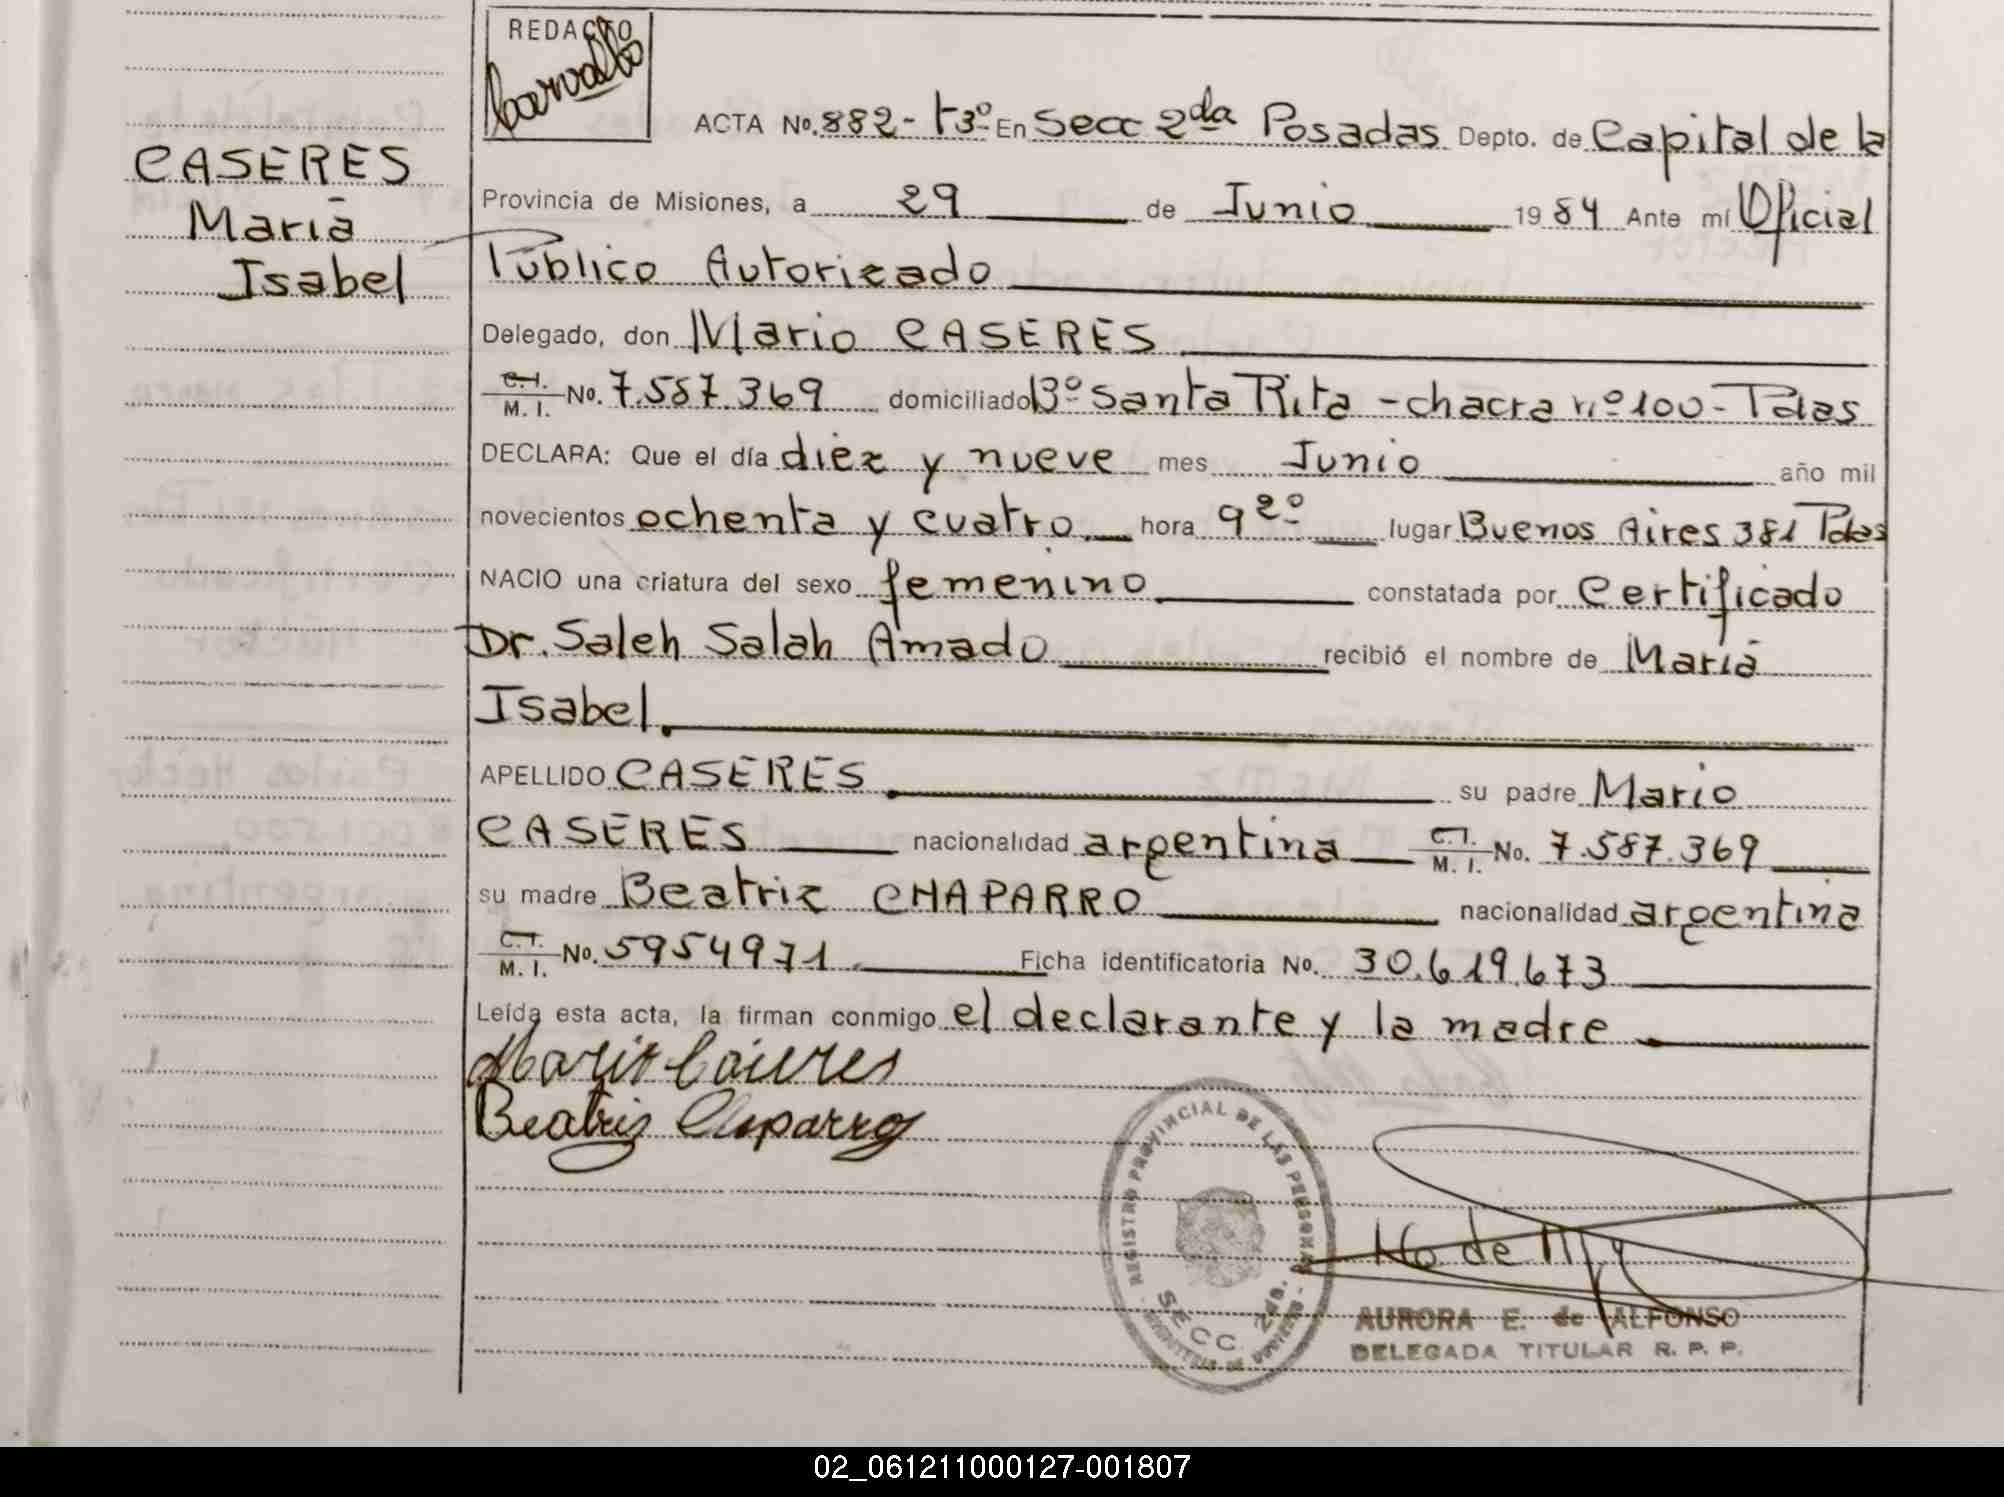 REDACTO
Carvallo
CASERES
María
Isabel
ACTA No. 882 - t3º En Secc 2da Posadas Depto. de Capital de la
Provincia de Misiones, a 29 de Junio 1984 Ante mí Oficial
Público Autorizado
Delegado, don Mario CASERES
C.I. M.I. No. 7.587.369 domiciliado Bº Santa Rita - chacra nº 100 - Pdas
DECLARA: Que el día diez y nueve mes Junio año mil
novecientos ochenta y cuatro. hora 9 20 lugar Buenos Aires 381 Pdas
NACIO una criatura del sexo femenino constatada por Certificado
Dr. Saleh Salah Amado recibió el nombre de María
Isabel.
APELLIDO CASERES su padre Mario
CASERES nacionalidad argentina C.I. M.I. No. 7.587.369
su madre Beatriz CHAPARRO nacionalidad argentina
C.I. M.I. No. 5954971 Ficha identificatoria No. 30.619.673
Leída esta acta, la firman conmigo el declarante y la madre
Mario Caseres
Beatriz Chaparro
REGISTRO PROVINCIAL DE LAS PERSONAS
SECC. 2da.
MINISTERIO DE GOBIERNO
AURORA E. de ALFONSO
DELEGADA TITULAR R. P. P.
02_061211000127-001807